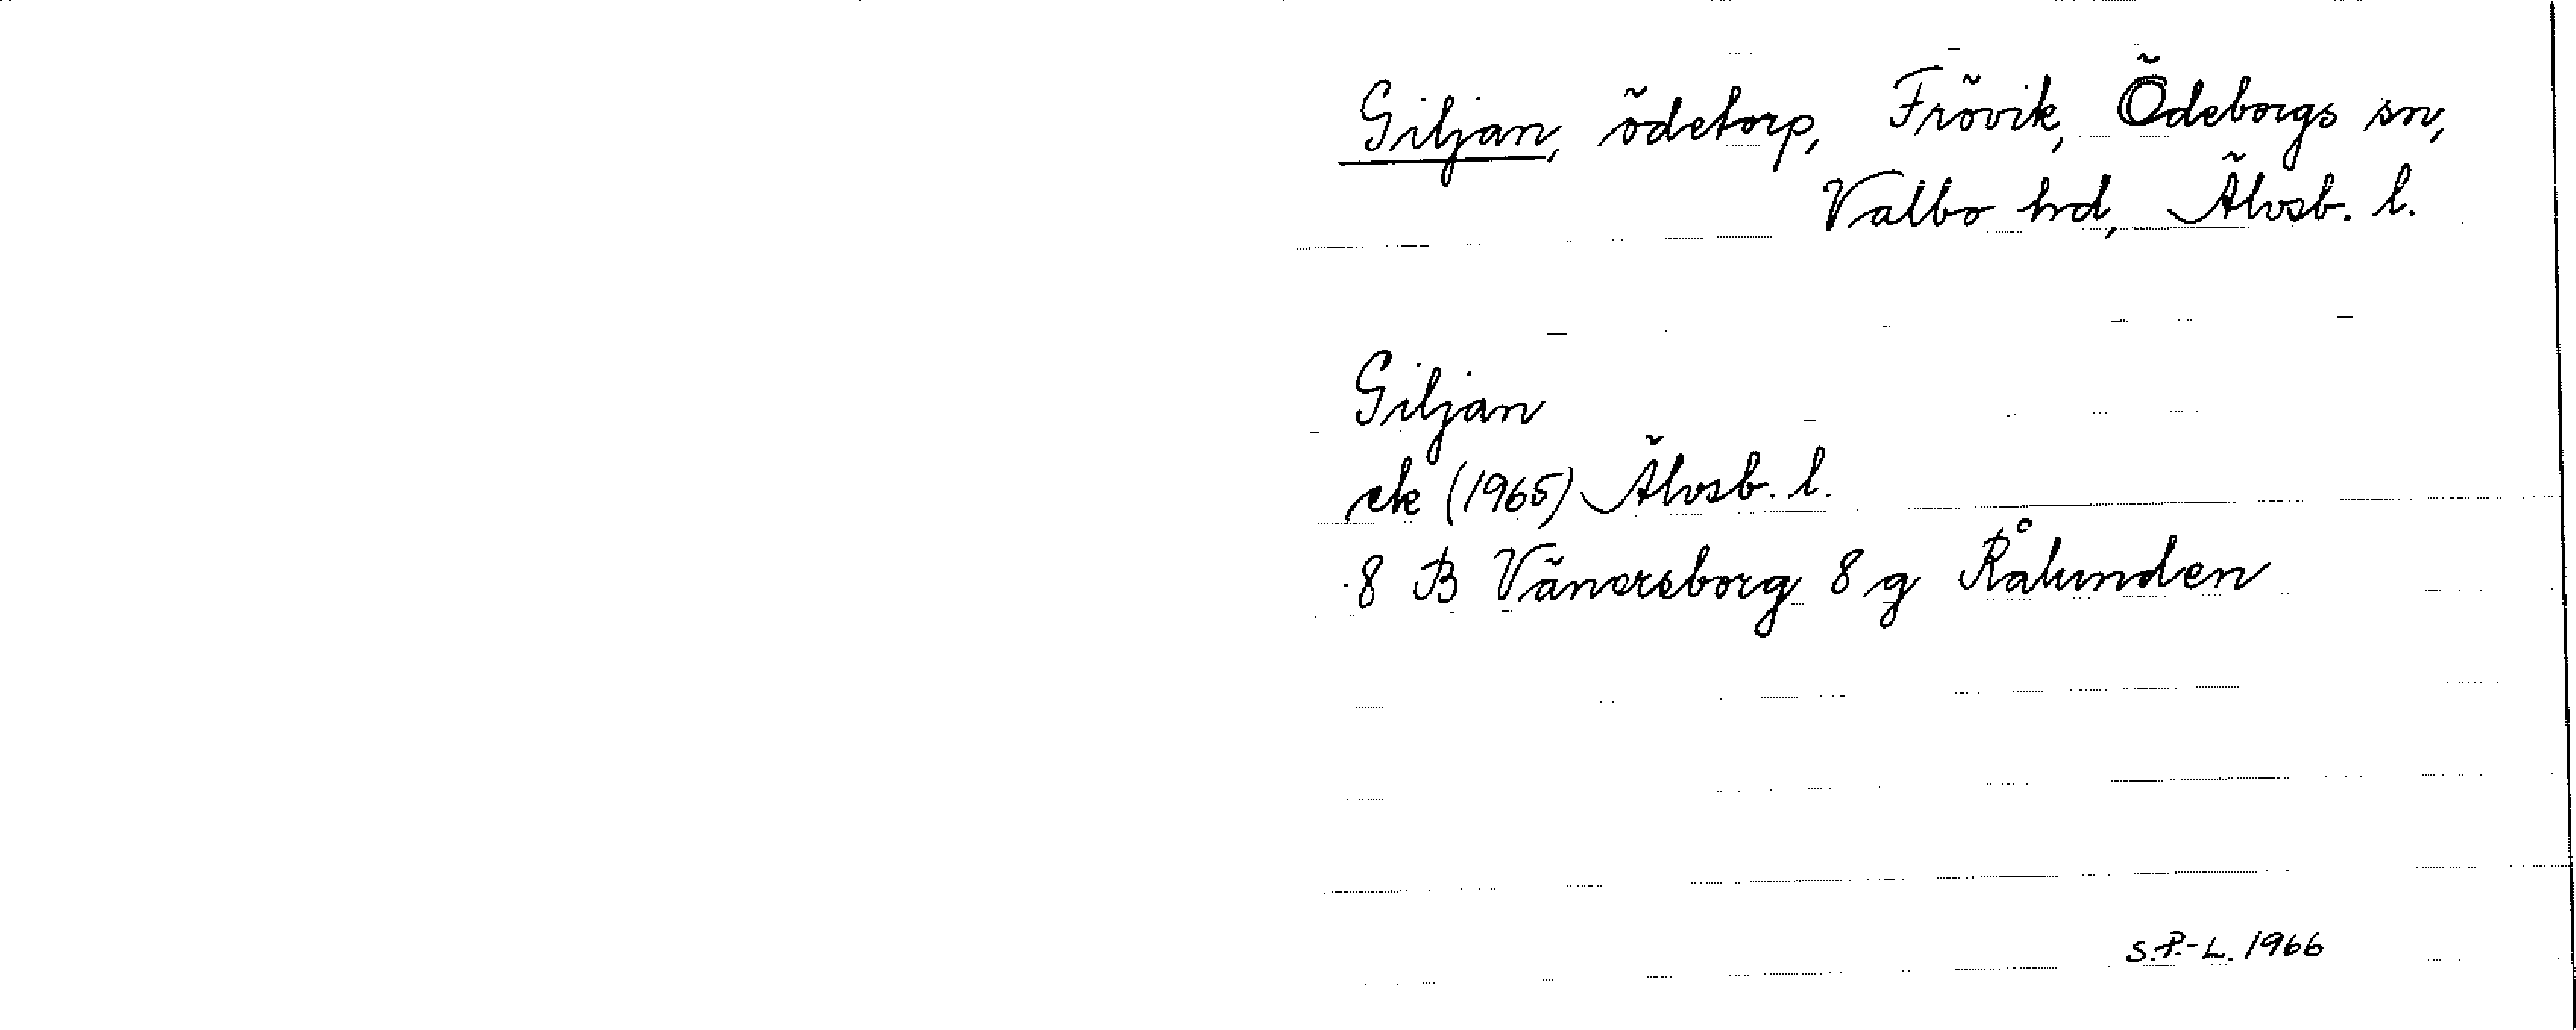 Giljan, ödetorp, Frövik, Ödeborgs sn,
Valbo hd, Älvsb. l.
Giljan
ek (1965) Älvsb. l.
8 B Vänersborg 8 g Rålunden
S.P.-L. 1966